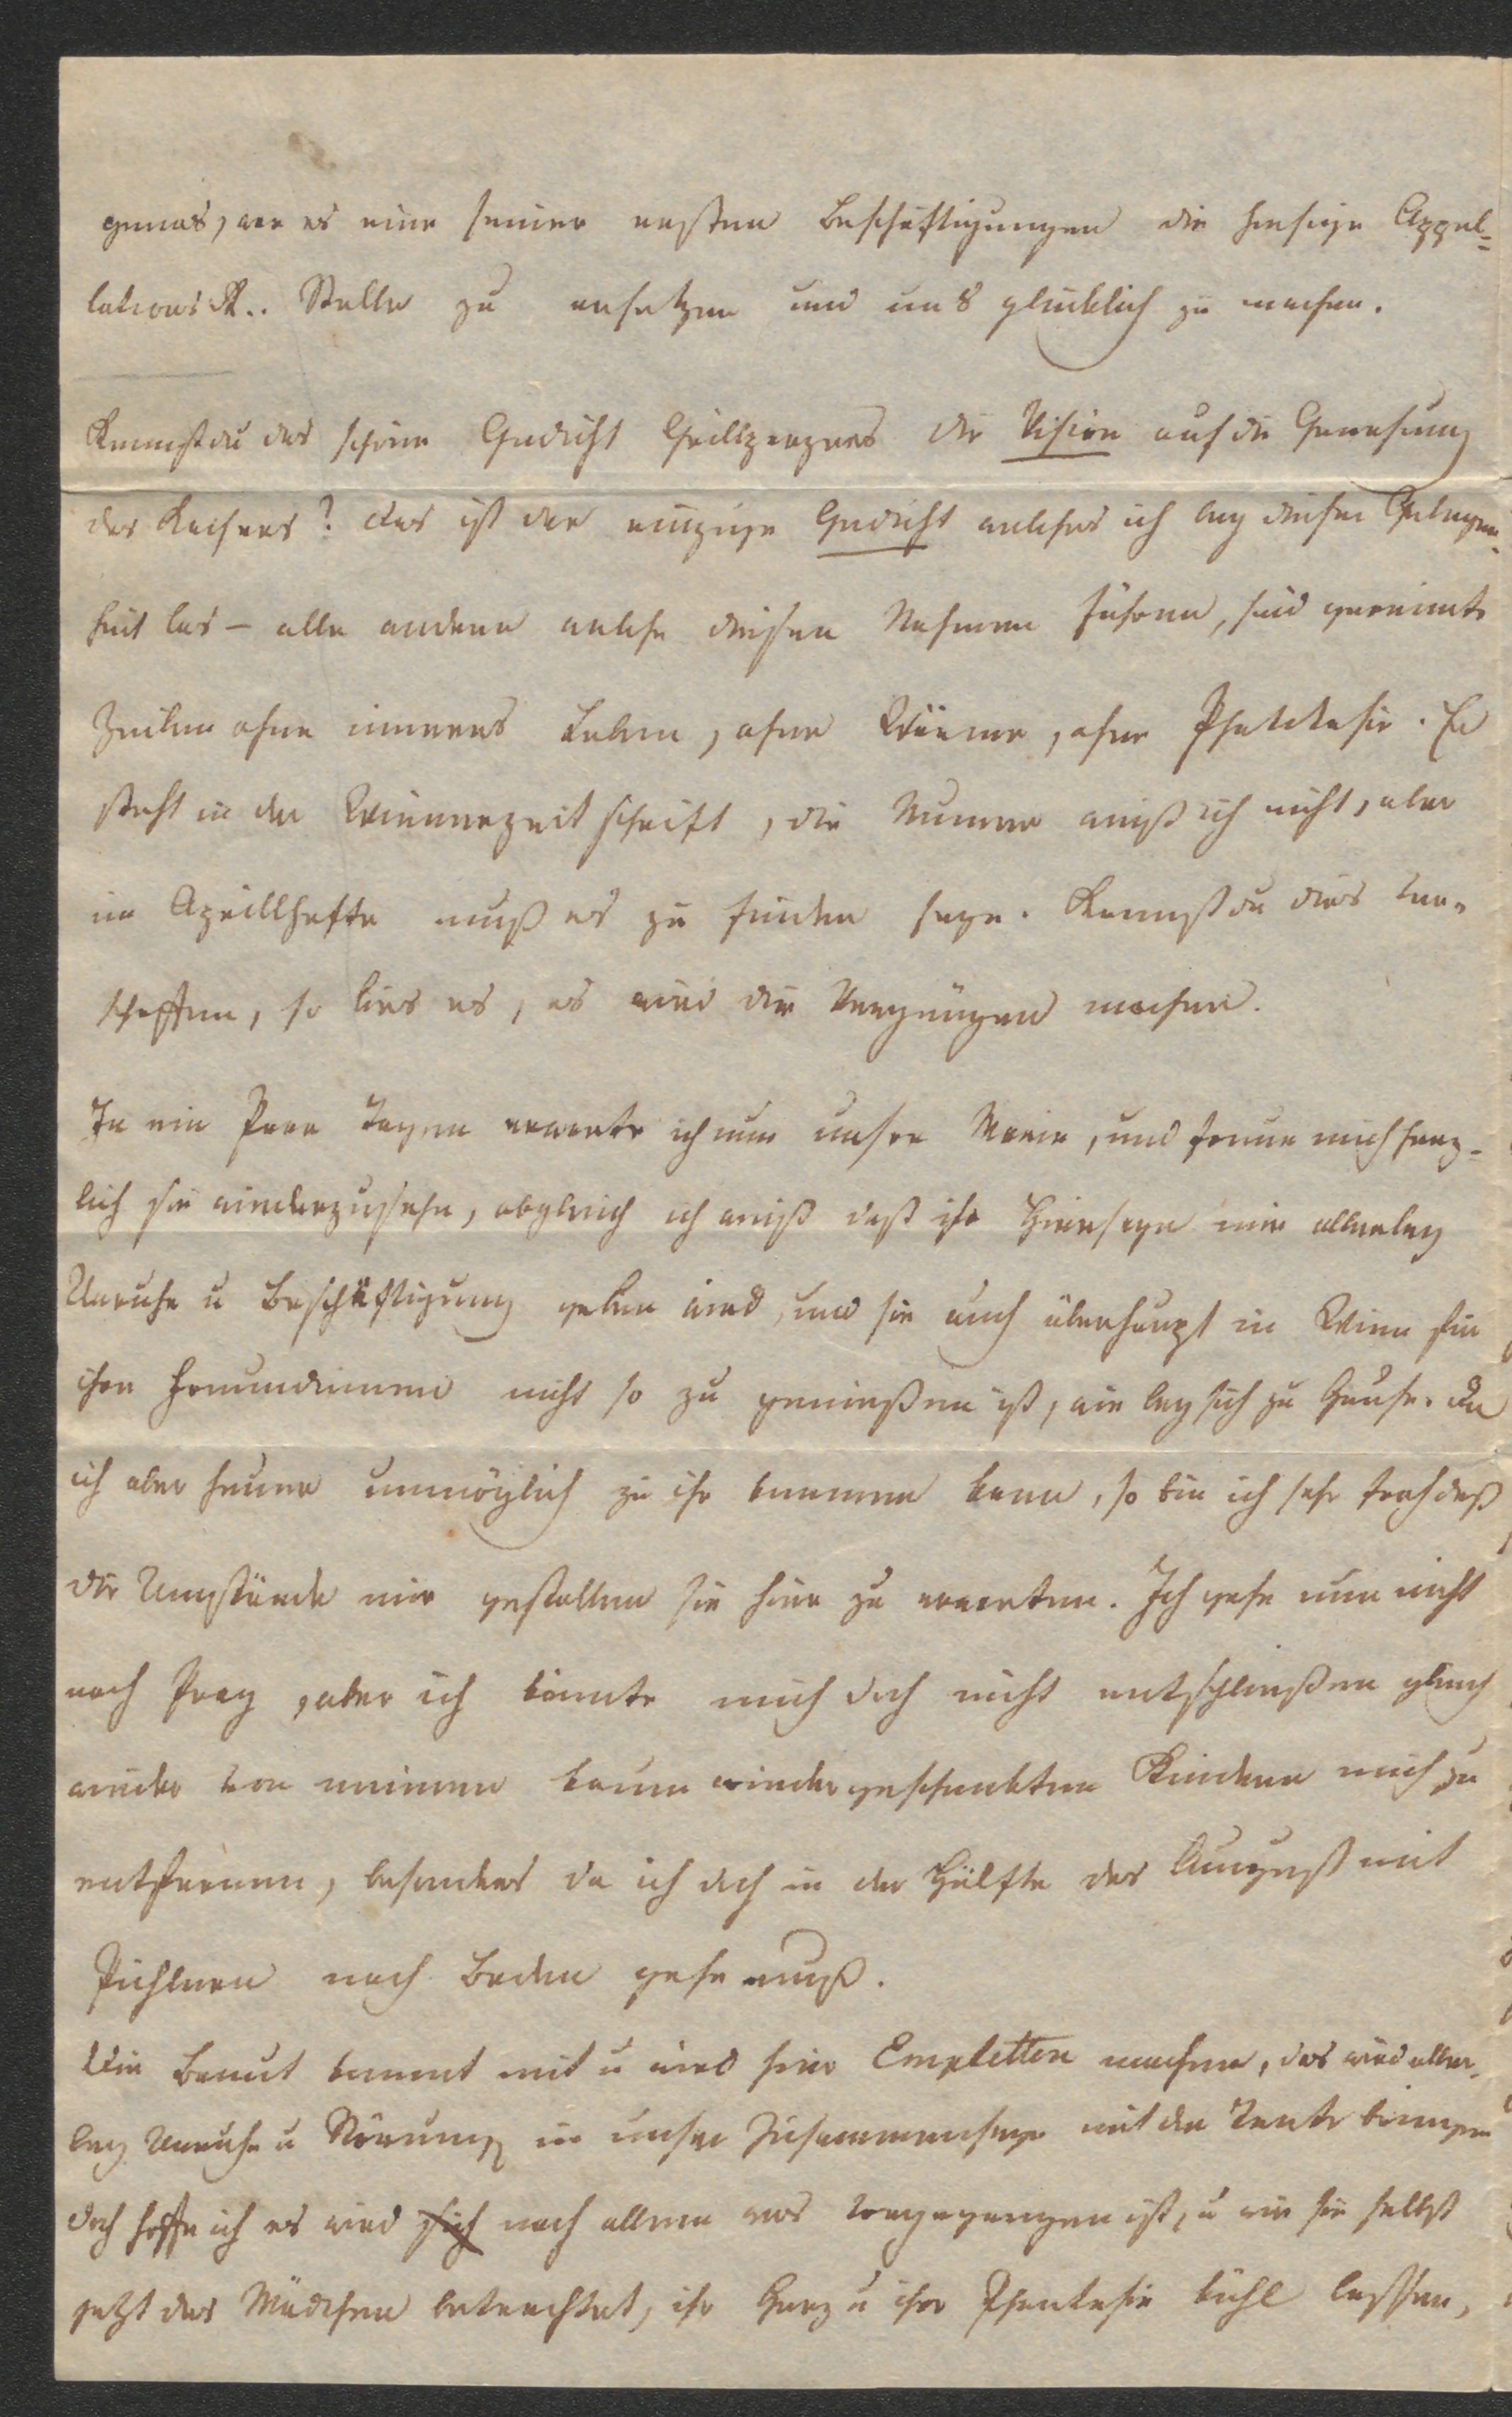 genas, war es eine seiner ersten Beschäftigungen die hiesige Appel=
lations R.. Stelle zu ersetzen und uns glücklich zu machen.
Kennst du das schöne Gedicht Grillparzers die Vision auf die Genesung
des Kaisers? das ist das einzige Gedicht welches ich bey dieser Gelegen=
heit las – alle andern welche diesen Nahmen führen, sind gereimte
Zeilen ohne inneres Leben, ohne Wärme, ohne Phantasie. Es
steht in der Wienerzeitschrift, die Numer weiß ich nicht, aber
im Aprillhefte muß es zu finden seyn. Kannst du dies ver=
schaffen, so lies es, es wird dir Vergnügen machen.
In ein Paar Tagen erwarte ich nun unsre Marie, und freue mich herz=
lich sie wiederzusehn, obgleich ich weiß daß ihr Hierseyn mir allerley
Unruhe u Beschäftigung geben wird, und sie auch überhaupt in Wien für
ihre Freundinnen nicht so zu genießen ist, wie bey sich zu Hause. Da
ich aber heuer unmöglich zu ihr kommen kann, so bin ich sehr froh daß
die Umstände mir gestatten sie hier zu erwarten. Ich gehe nun nicht
nach Prag, aber ich könnte mich doch nicht entschließen gleich
wieder von meinen kaum wiedergeschenkten Kindern mich zu
entfernen, besonders da ich doch in der Hälfte des August mit
Pichlern nach Baden gehn muß.
Die Braut kommt mit u wird hier Empletten machen, das wird aller=
ley Unruhe u Störung in unser Zusammenseyn mit der Tante bringen
doch hoffe ich es wird sich nach allem was vorgegangen ist, u wie sie selbst
jetzt das Mädchen betrachtet, ihr Herz u ihre Phantasie kühl lassen,